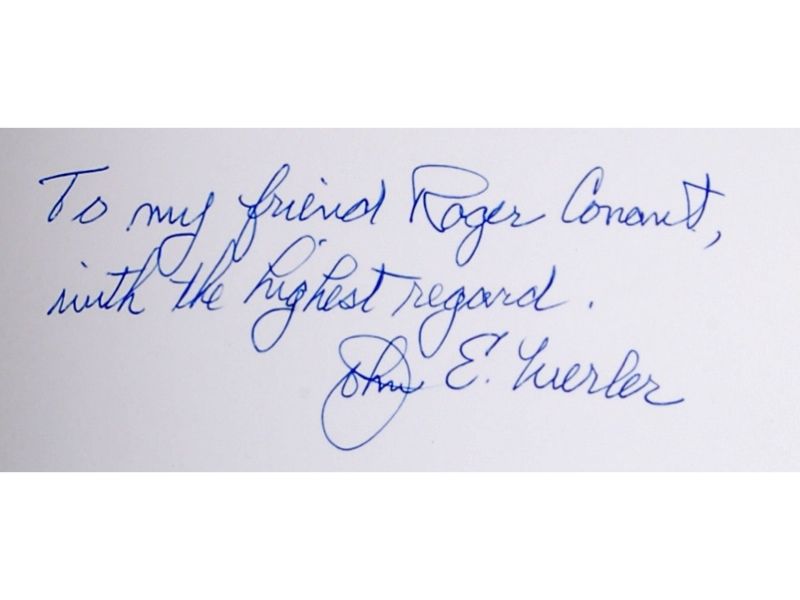 To my friend Roger Conant,
with the highest regard.
John E. Werler